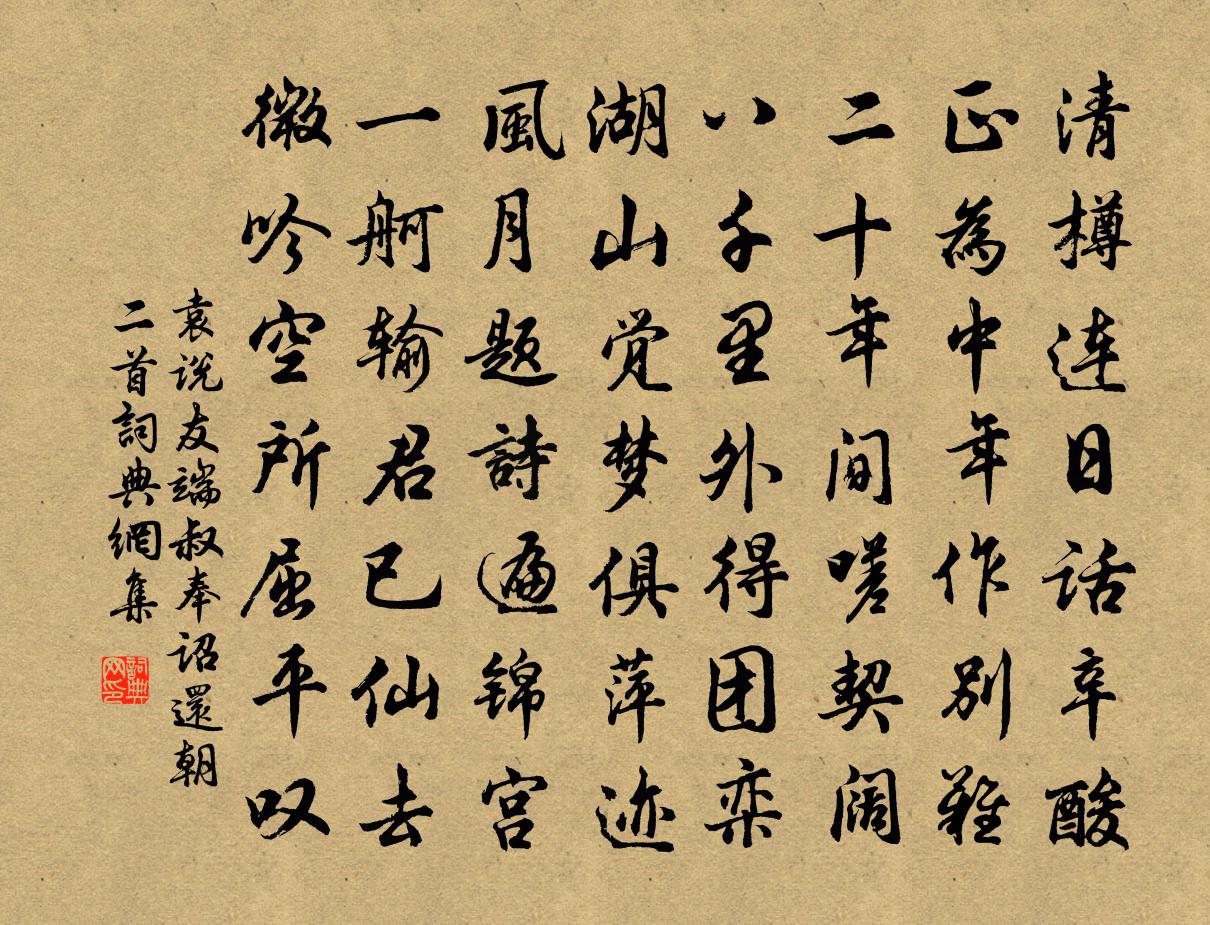 清樽连日话辛酸
正為中年作别難
二十年间嗟契阔
八千里外得团栾
湖山觉梦俱萍迹
風月题詩遍锦宫
一舸输君已仙去
微吟空所屈平叹
袁说友端叔奉诏還朝
二首詞典網集
詞典
网印